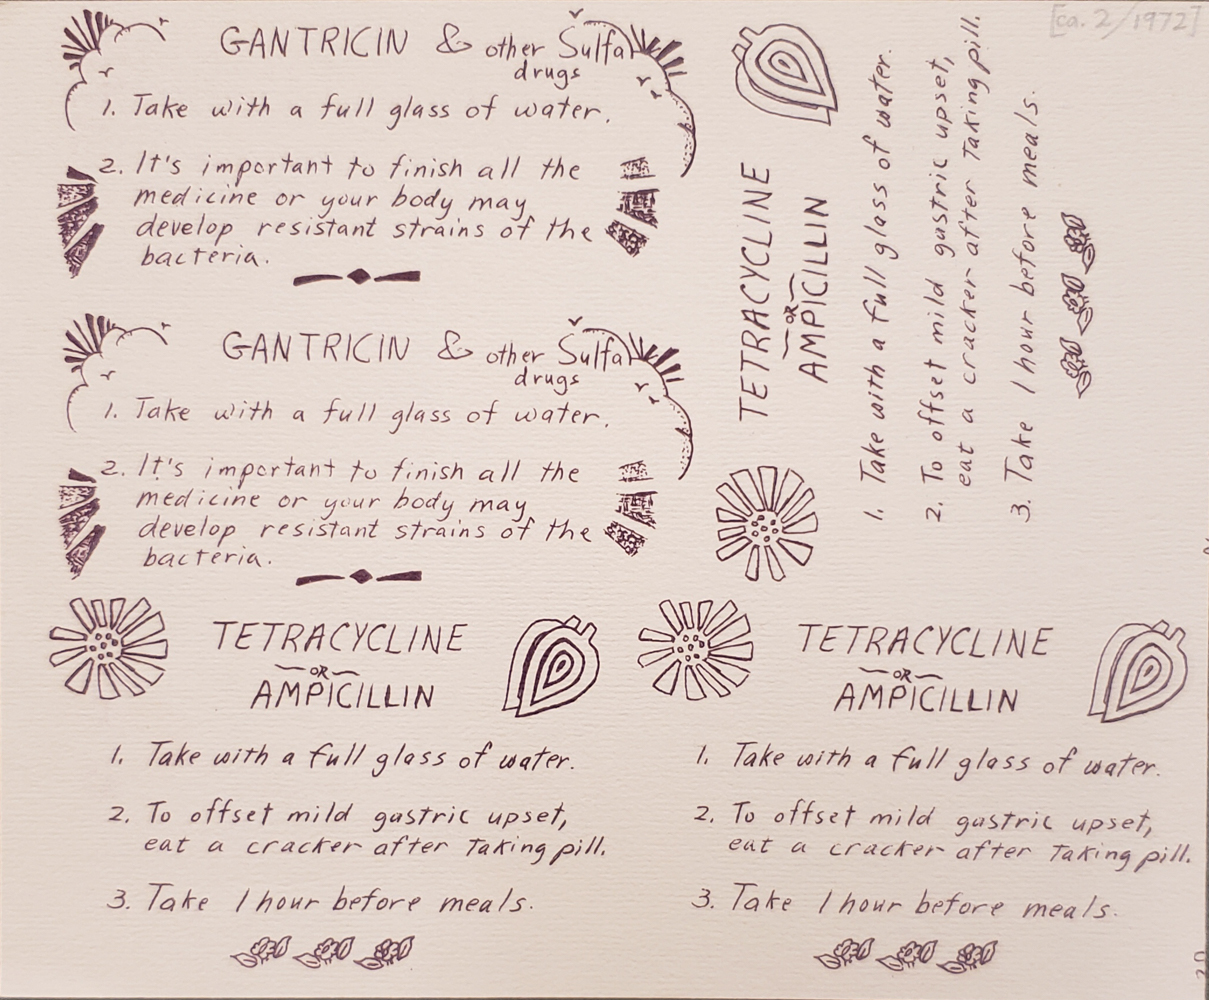 [ca. 2/1972]
GANTRICIN & other Sulfa
drugs
1. Take with a full glass of water.
2. It's important to finish all the
medicine or your body may
develop resistant strains of the
bacteria.
GANTRICIN & other Sulfa
drugs
1. Take with a full glass of water.
2. It's important to finish all the
medicine or your body may
develop resistant strains of the
bacteria.
TETRACYCLINE
OR
AMPICILLIN
1. Take with a full glass of water.
2. To offset mild gastric upset,
eat a cracker after Taking pill.
3. Take 1 hour before meals.
TETRACYCLINE
OR
AMPICILLIN
1. Take with a full glass of water.
2. To offset mild gastric upset,
eat a cracker after Taking pill.
3. Take 1 hour before meals.
TETRACYCLINE
OR
AMPICILLIN
1. Take with a full glass of water.
2. To offset mild gastric upset,
eat a cracker after Taking pill.
3. Take 1 hour before meals.